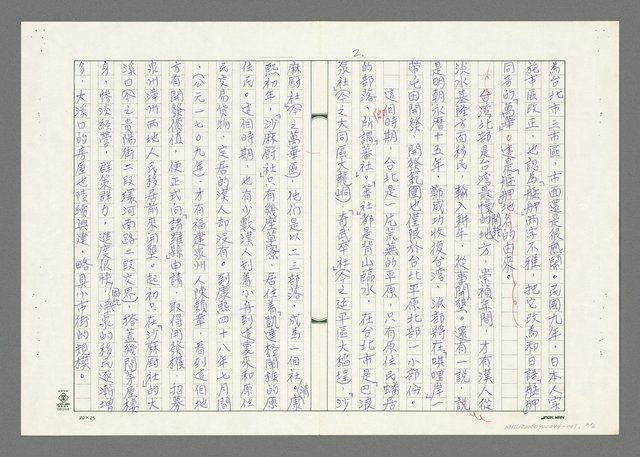 2.
為台北市三市區,市面還是很熱鬧。民國九年,日本人家
施市區改正,也認為「艋舺」兩字不雅,把它改為和日語「艋舺」
同音的「萬華」。這是艋舺地名的由來。
台灣北部是台灣最慢開發的地方,崇禎年間,才有漢人從
淡水基隆方面移民,輸入耕牛,從事開墾。還有一說,說
是明朝永曆十五年,鄭成功收復台灣,派部將在「唭哩岸」一
帶屯田開墾,開發範圍也僅限於台北平原北部一小部份。
這個時期,台北是一片荒無的平原,只有原住民蟠居
的部落,所謂番社。蕃社都是背山臨水,在台北市是「巴浪
泵社」(今之大同區大龍峒)「奇武卒社」(今之延平區大稻埕)「沙
麻廚社」(今之萬華區)他們是以二三部落,成為一個社。清康
熙初年,「沙麻廚社」只有幾座草寮,居住着「凱達格蘭族」的原
住民。這個時期,也有少數漢人划着小舟到這裏來和原住
民交易貨物,定居的漢人却沒有。到康熙四十八年七月間
(公元一七〇九年)才有福建泉州人陳賴章,看到這個地
方有開發價值,便正式向「諸羅縣」申請,取得開發權,招募
泉州漳州兩地人民移居前來開墾。起初只在「沙麻廚社」的大
溪口(今之貴陽街二段環河南路二段交界)搭蓋幾間茅屋棲
身,慘淡經營,群策群力,進度很快,因此漳泉的移民逐漸增
多,大溪口的房屋也陸續興建,略具小市街的規模。
20×25